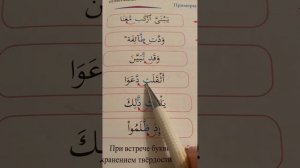 Примеры
يَـٰبُنَىَّ ٱرْكَب مَّعَنَا
وَدَّت طَّآئِفَةٌ
وَقَد تَّبَيَّنَ
أَثْقَلَت دَّعَوَا
يَلْهَث ذَّٰلِكَ
إِذ ظَّلَمُوٓا۟
При встрече букв
хранением твёрдости